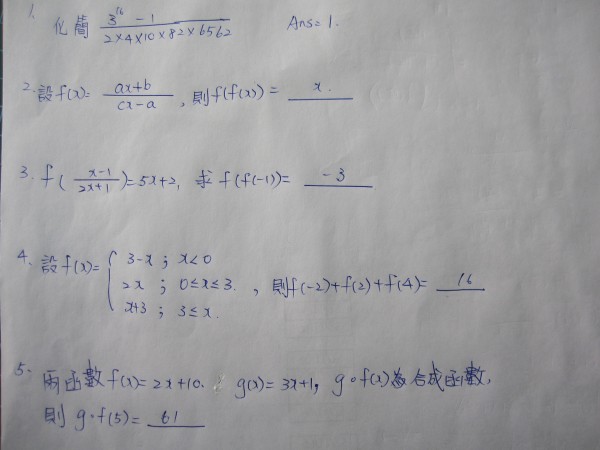 1. 化簡 (3^16 - 1)/(2×4×10×82×6562) Ans = 1.
2. 設f(x)= (ax+b)/(cx-a) , 則f(f(x)) = x.
3. f((x-1)/(2x+1))=5x+2, 求 f(f(-1))= -3
4. 設f(x)= { 3-x ; x<0
2x ; 0≤x≤3. , 則f(-2)+f(2)+f(4)= 16
x+3 ; 3≤x.
5. 兩函數f(x)=2x+10. g(x)=3x+1, g∘f(x)為合成函數,
則 g∘f(5)= 61